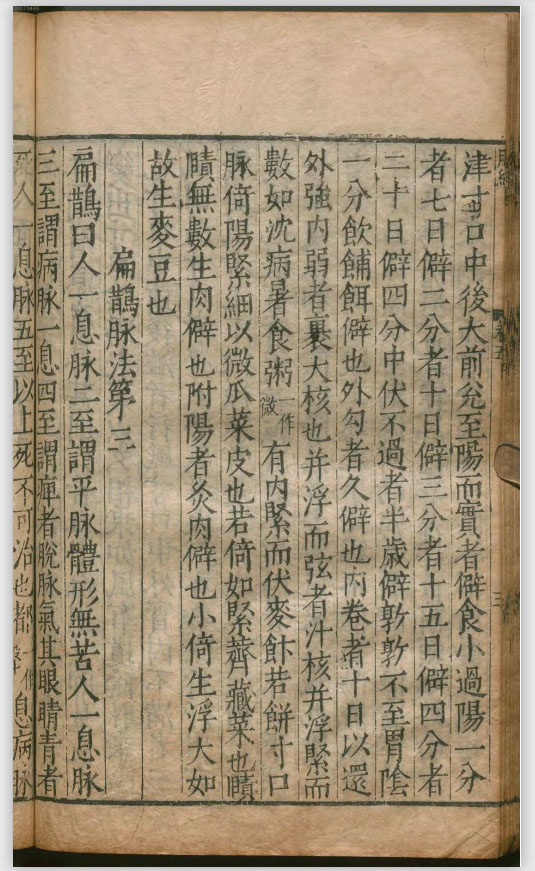 津寸口中後大前兌至陽而實者僻食小過陽一分
者七日僻二分者十日僻三分者十五日僻四分者
二十日僻四分中伏不過者半歲僻敦敦不至胃陰
一分飲餔餌僻也外勾者久僻也內卷者十日以還
外強內弱者裹大核也并浮而弦者汁核并浮緊而
數如沈病暑食粥一作微有內緊而伏麥飰若餅寸口
脉倚陽緊細以微瓜菜皮也若倚如緊薺藏菜也賾
賾無數生肉僻也附陽者炙肉僻也小倚生浮大如
故生麥豆也
扁鵲脉法第三
扁鵲曰人一息脉二至謂平脉體形無苦人一息脉
三至謂病脉一息四至謂痺者脫脉氣其眼睛青者
人一息脉五至以上死不可治也都一作息病脉